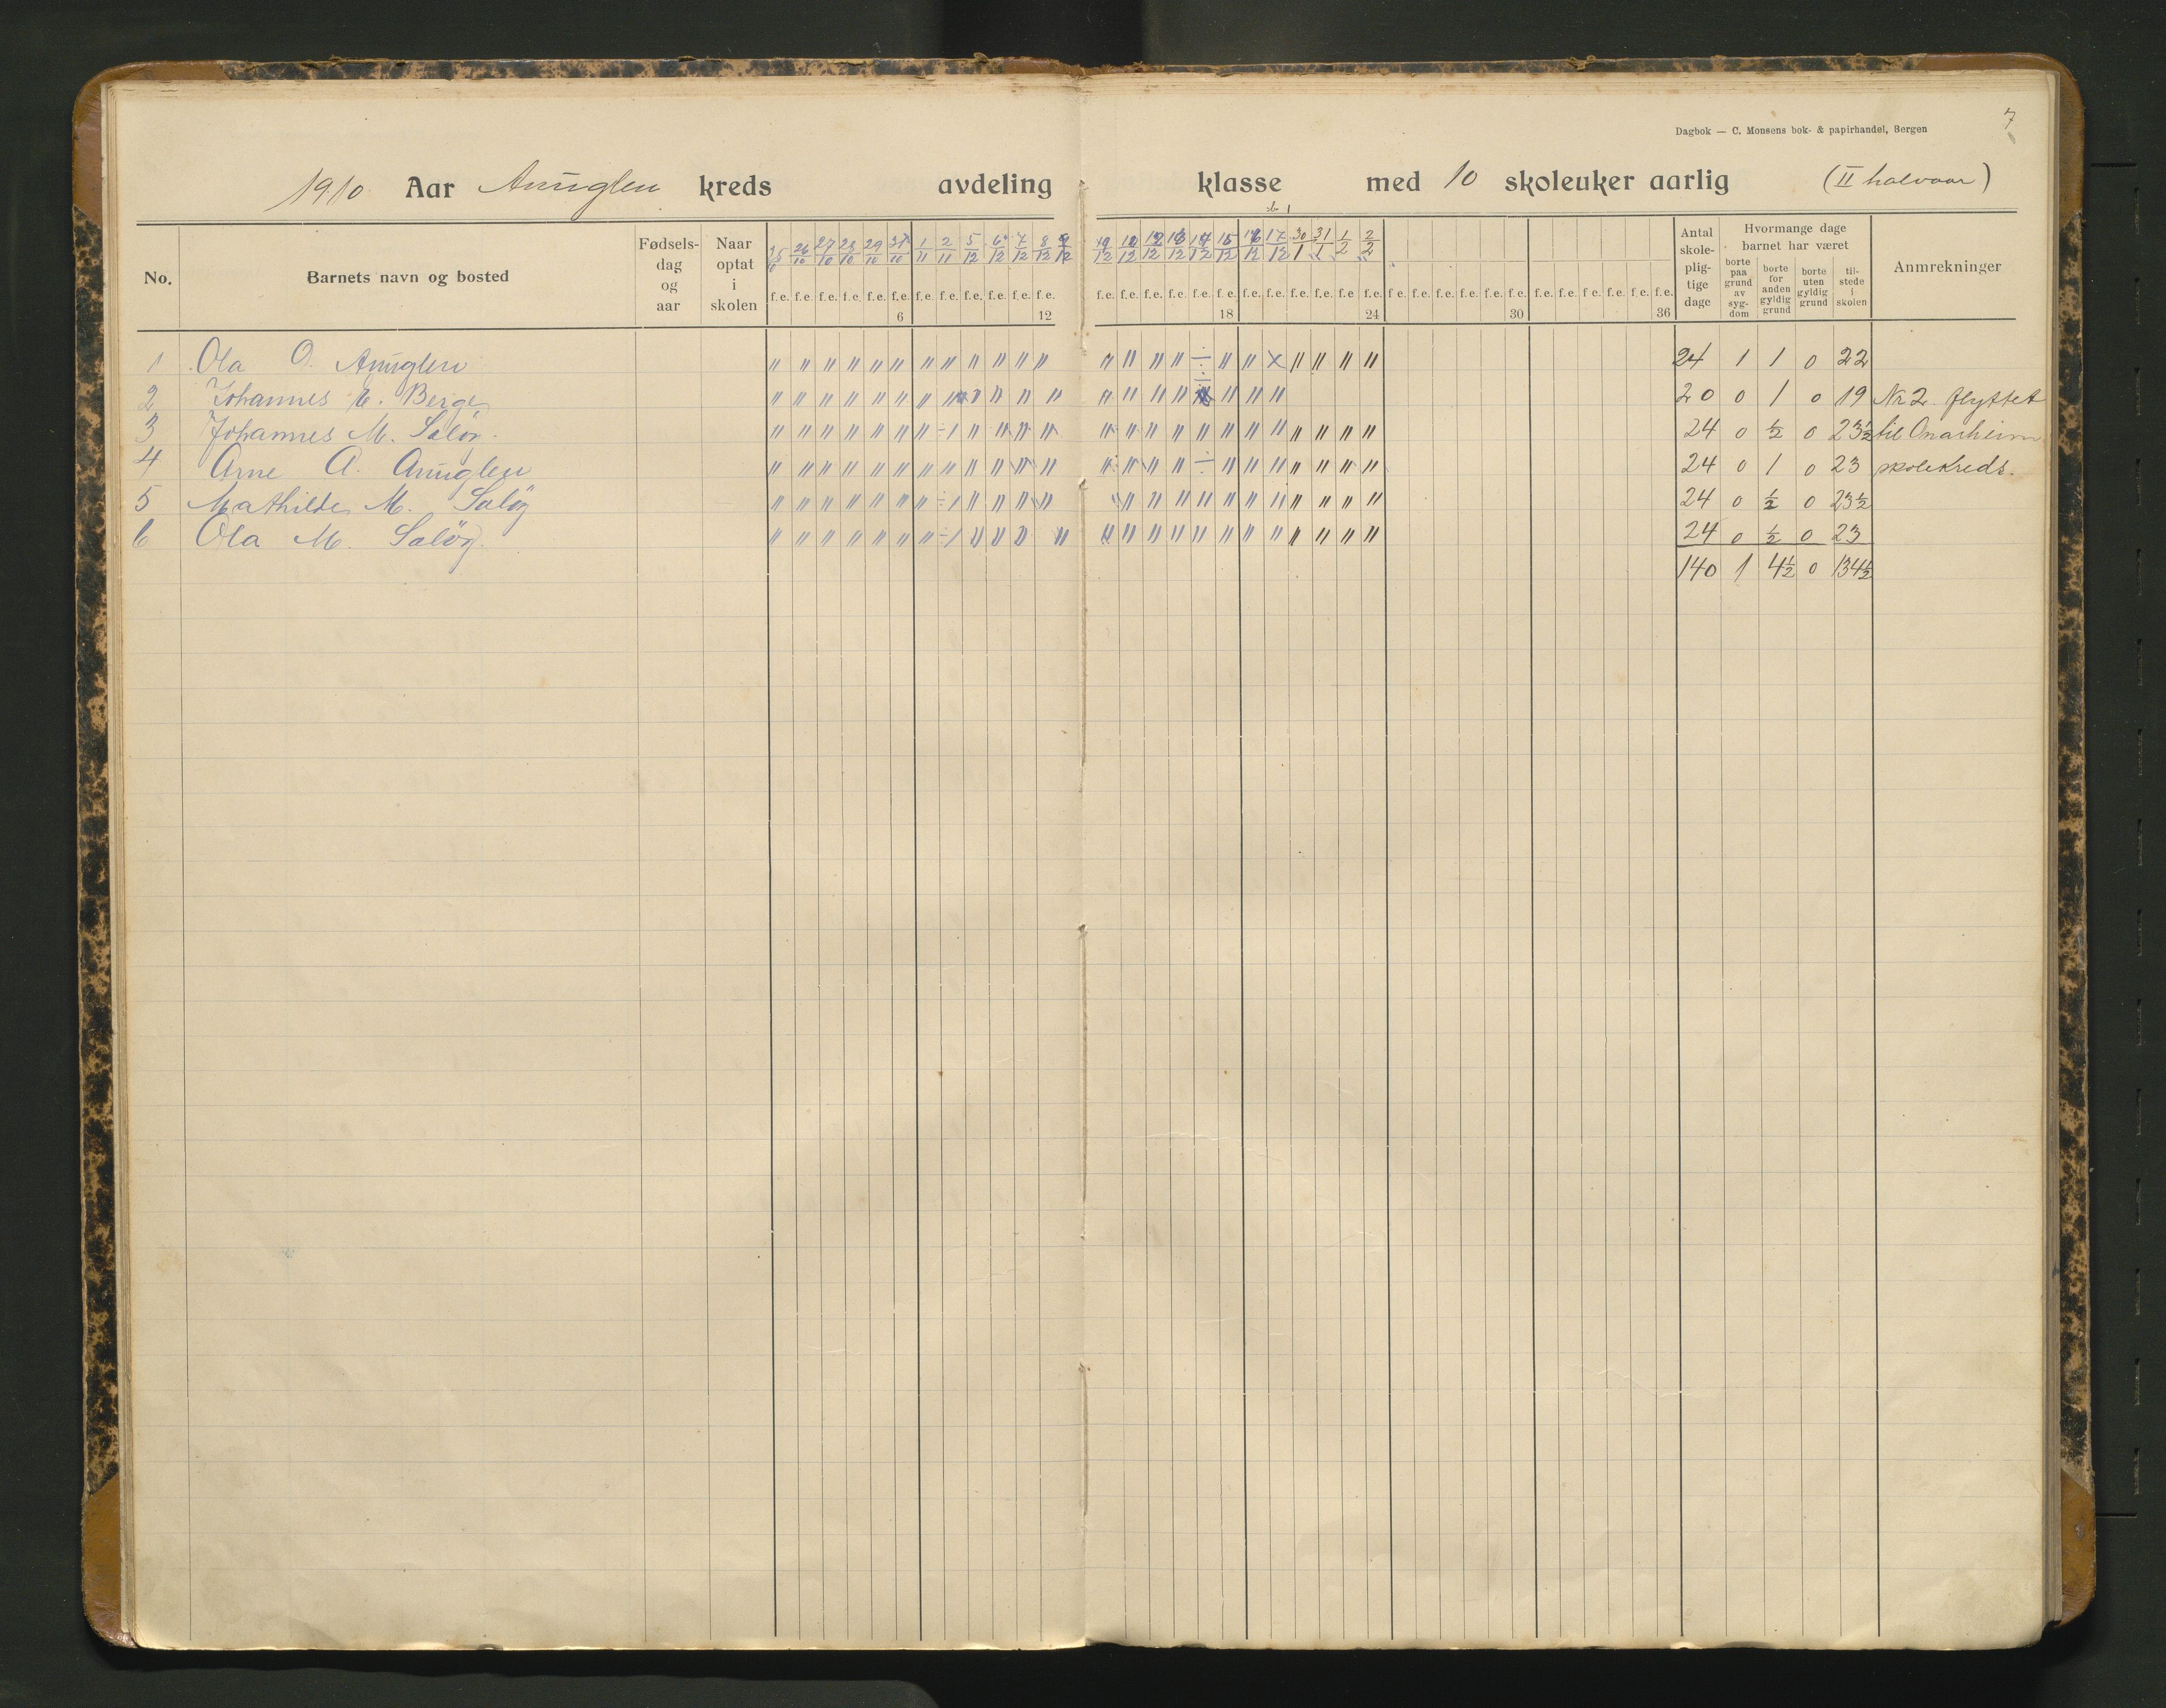 Dagbok — C. Monsens bok- & papirhandel, Bergen
7
1910 Aar Anuglen kreds avdeling klasse med 10 skoleuker aarlig (II halvaar)
No. Barnets navn og bosted Fødsels- dag og aar Naar optat i skolen
25/10 26/10 27/10 28/10 29/10 31/10 1/11 2/11 5/12 6/12 7/12 8/12 9/12 10/12 12/12 13/12 14/12 15/12 16/12 17/12 30/1 31/1 1/2 2/2
f.e. f.e. f.e. f.e. f.e. f.e. f.e. f.e. f.e. f.e. f.e. f.e. f.e. f.e. f.e. f.e. f.e. f.e. f.e. f.e. f.e. f.e. f.e. f.e. f.e. f.e. f.e. f.e. f.e. f.e. f.e. f.e. f.e. f.e. f.e. f.e.
6 12 18 24 30 36
Antal skole- plig- tige dage
Hvormange dage barnet har været
borte paa grund av syg- dom
borte for anden gyldig grund
borte uten gyldig grund
til- stede i skolen
Anmrekninger
1 Ola O. Anuglen 24 1 1 0 22
2 Johannes E. Berge 20 0 1 0 19 Nr 2 flyttet
3 Johannes M. Saløy. 24 0 ½ 0 23½ til Onarheim
4 Arne A. Anuglen 24 0 1 0 23 skolekreds.
5 Mathilde M. Saløy 24 0 ½ 0 23½
6 Ola M. Saløy. 24 0 ½ 0 23
140 1 4½ 0 134½